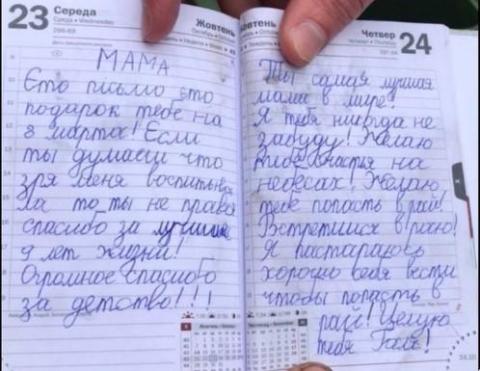 23 Середа
Среда • Wednesday
Жовтень
Октябрь • October
МАМА
Єто письмо єто
подарок тебе на
8 марта! Если
ты думаеш что
зря меня воспитыва
ла то ты не права
спасибо за лучшие
9 лет жизни!
Огромное спасибо
за детство!!!
Жовтень
Четвер 24
Ты самая лучшая
мама в мире!
Я тебя никогда не
забуду! Желаю
тебе счастья на
небесах! Желаю
тебе попасть в рай!
Встретимся в раю!
Я пастараюсь
хорошо себя вести
чтобы попасть в
рай! Целую
тебя